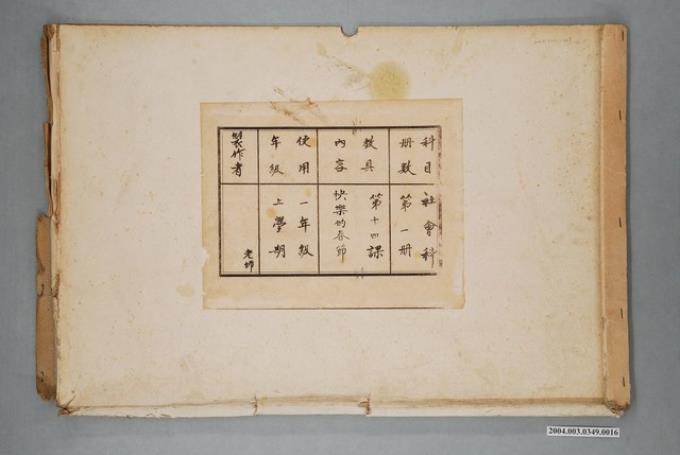 科目 社會科
冊數 第一冊
教具 第十四課
內容 快樂的春節
使用 一年級
年級 上學期
製作者 老師
2004.003.0349.0016